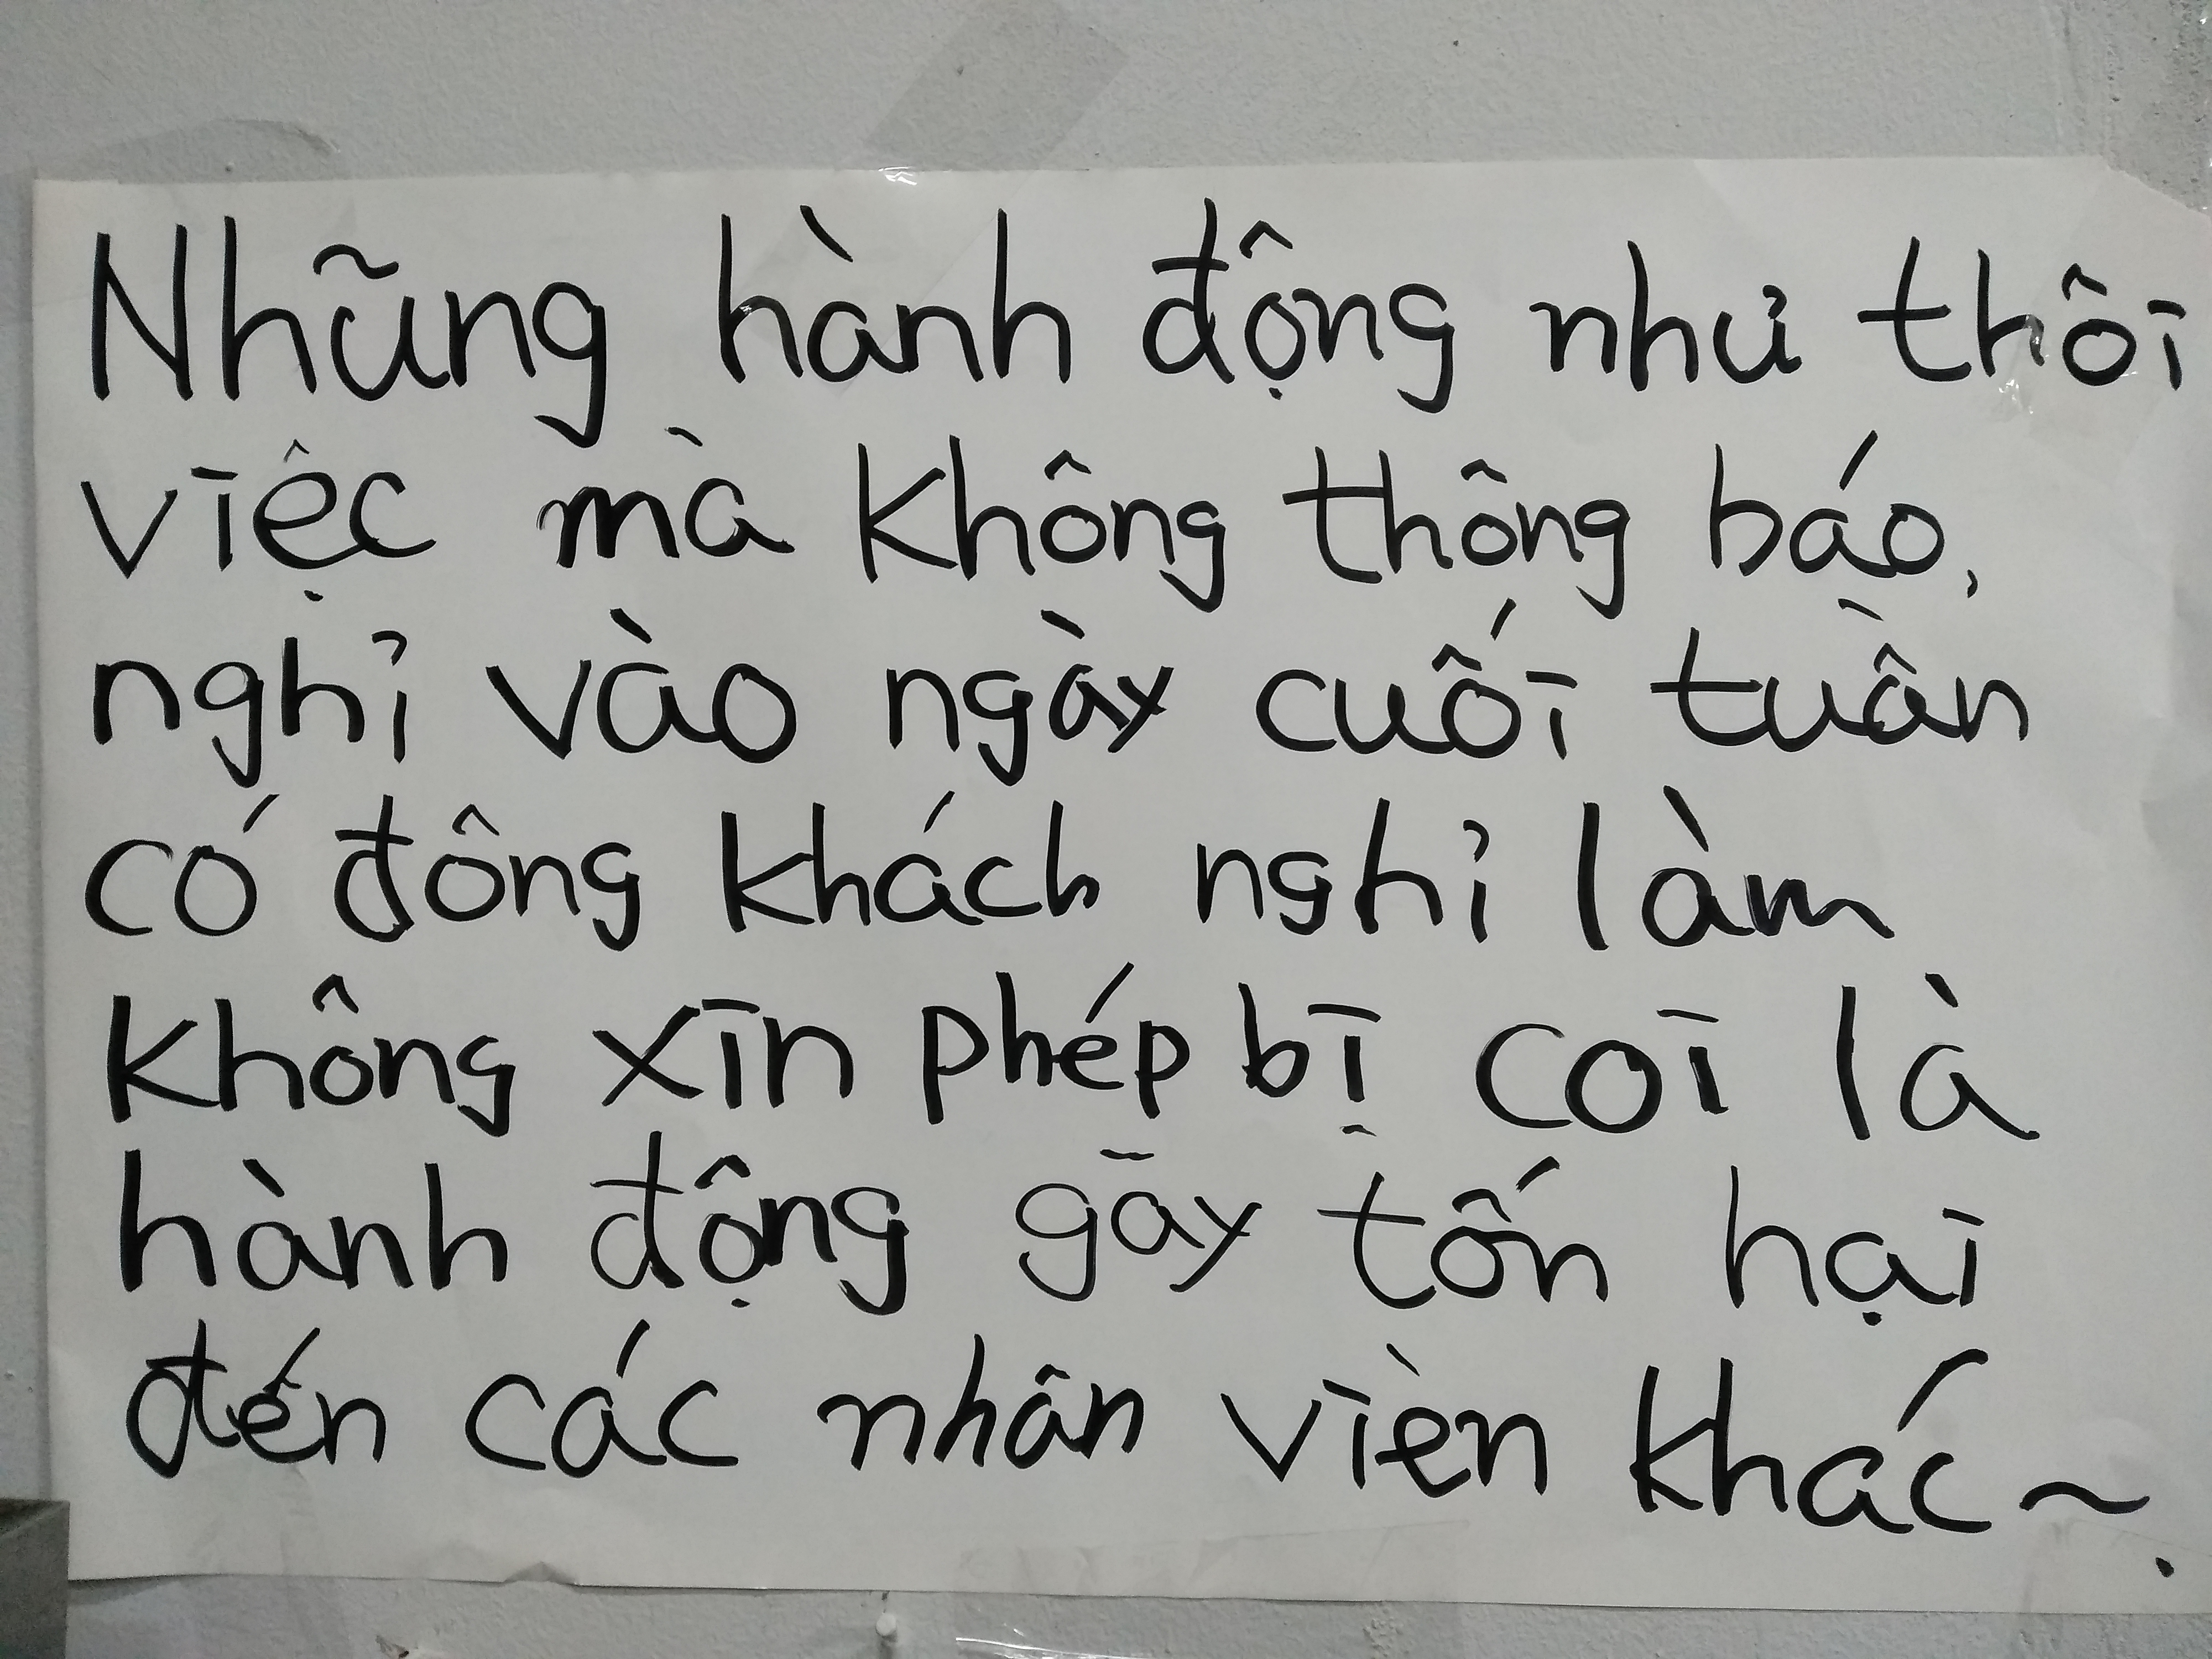 Nhũng hành động nhủ thôi
việc mà không thông báo,
nghỉ vào ngày cuối tuần
có đông khách nghỉ làm
không xin phép bị coi là
hành động gāy tốn hại
đến các nhân vièn khác~.